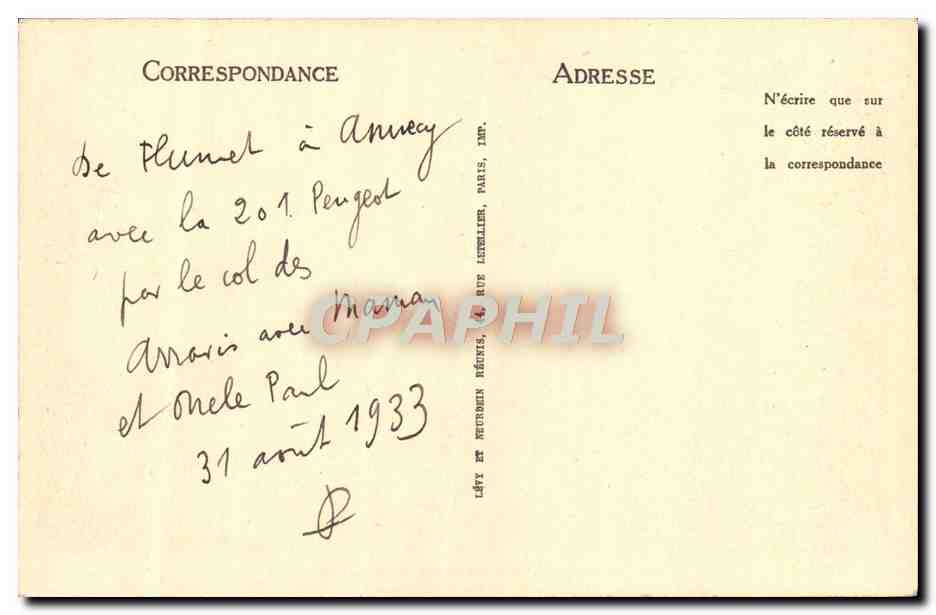 CORRESPONDANCE
ADRESSE
N'écrire que sur
le côté réservé à
la correspondance
De Flumet à Annecy
avec la 201 Peugeot
par le col des
Arravis avec Maman
et Oncle Paul
31 août 1933
LÉVY ET NEURDEIN RÉUNIS, 44, RUE LETELLIER, PARIS, IMP.
CPAPHIL